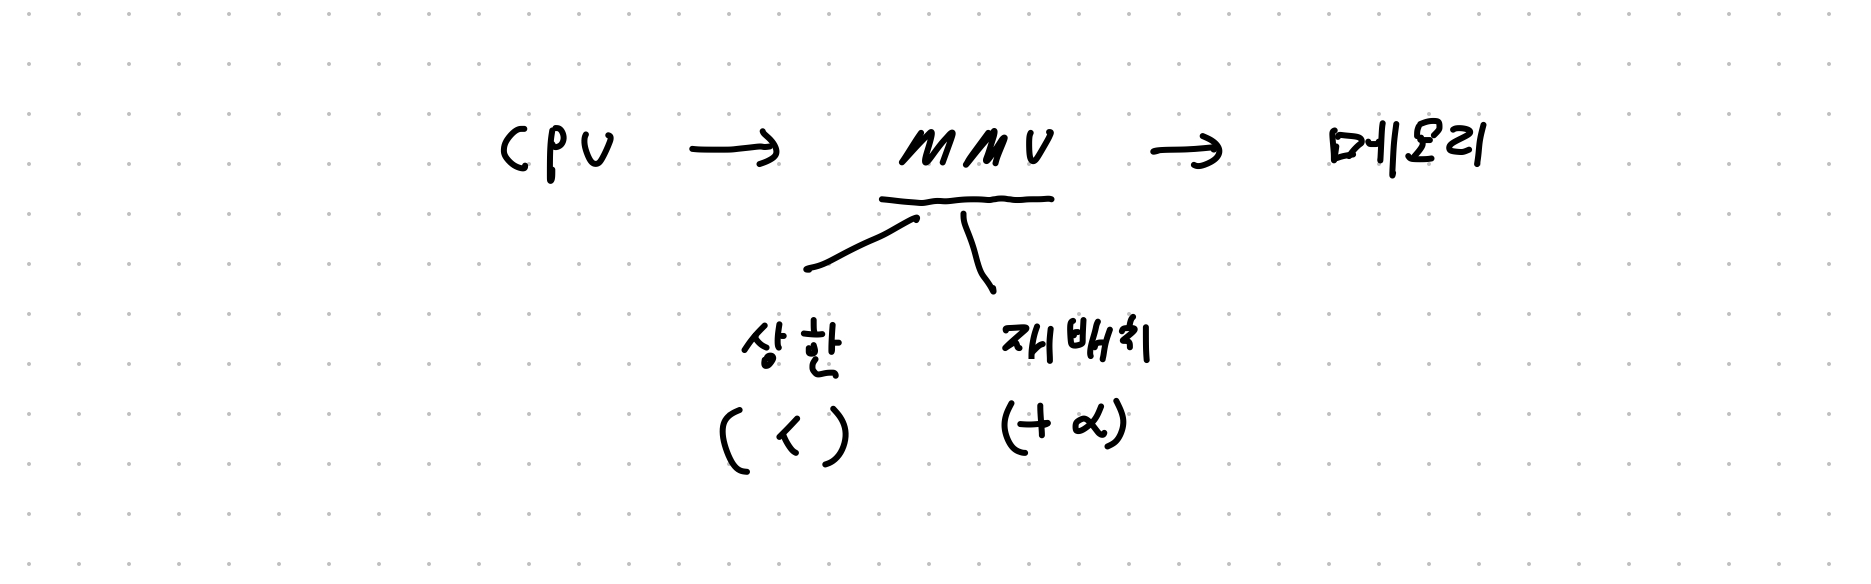 CPU → MMU → 메모리
상한 재배치
(<) (+α)